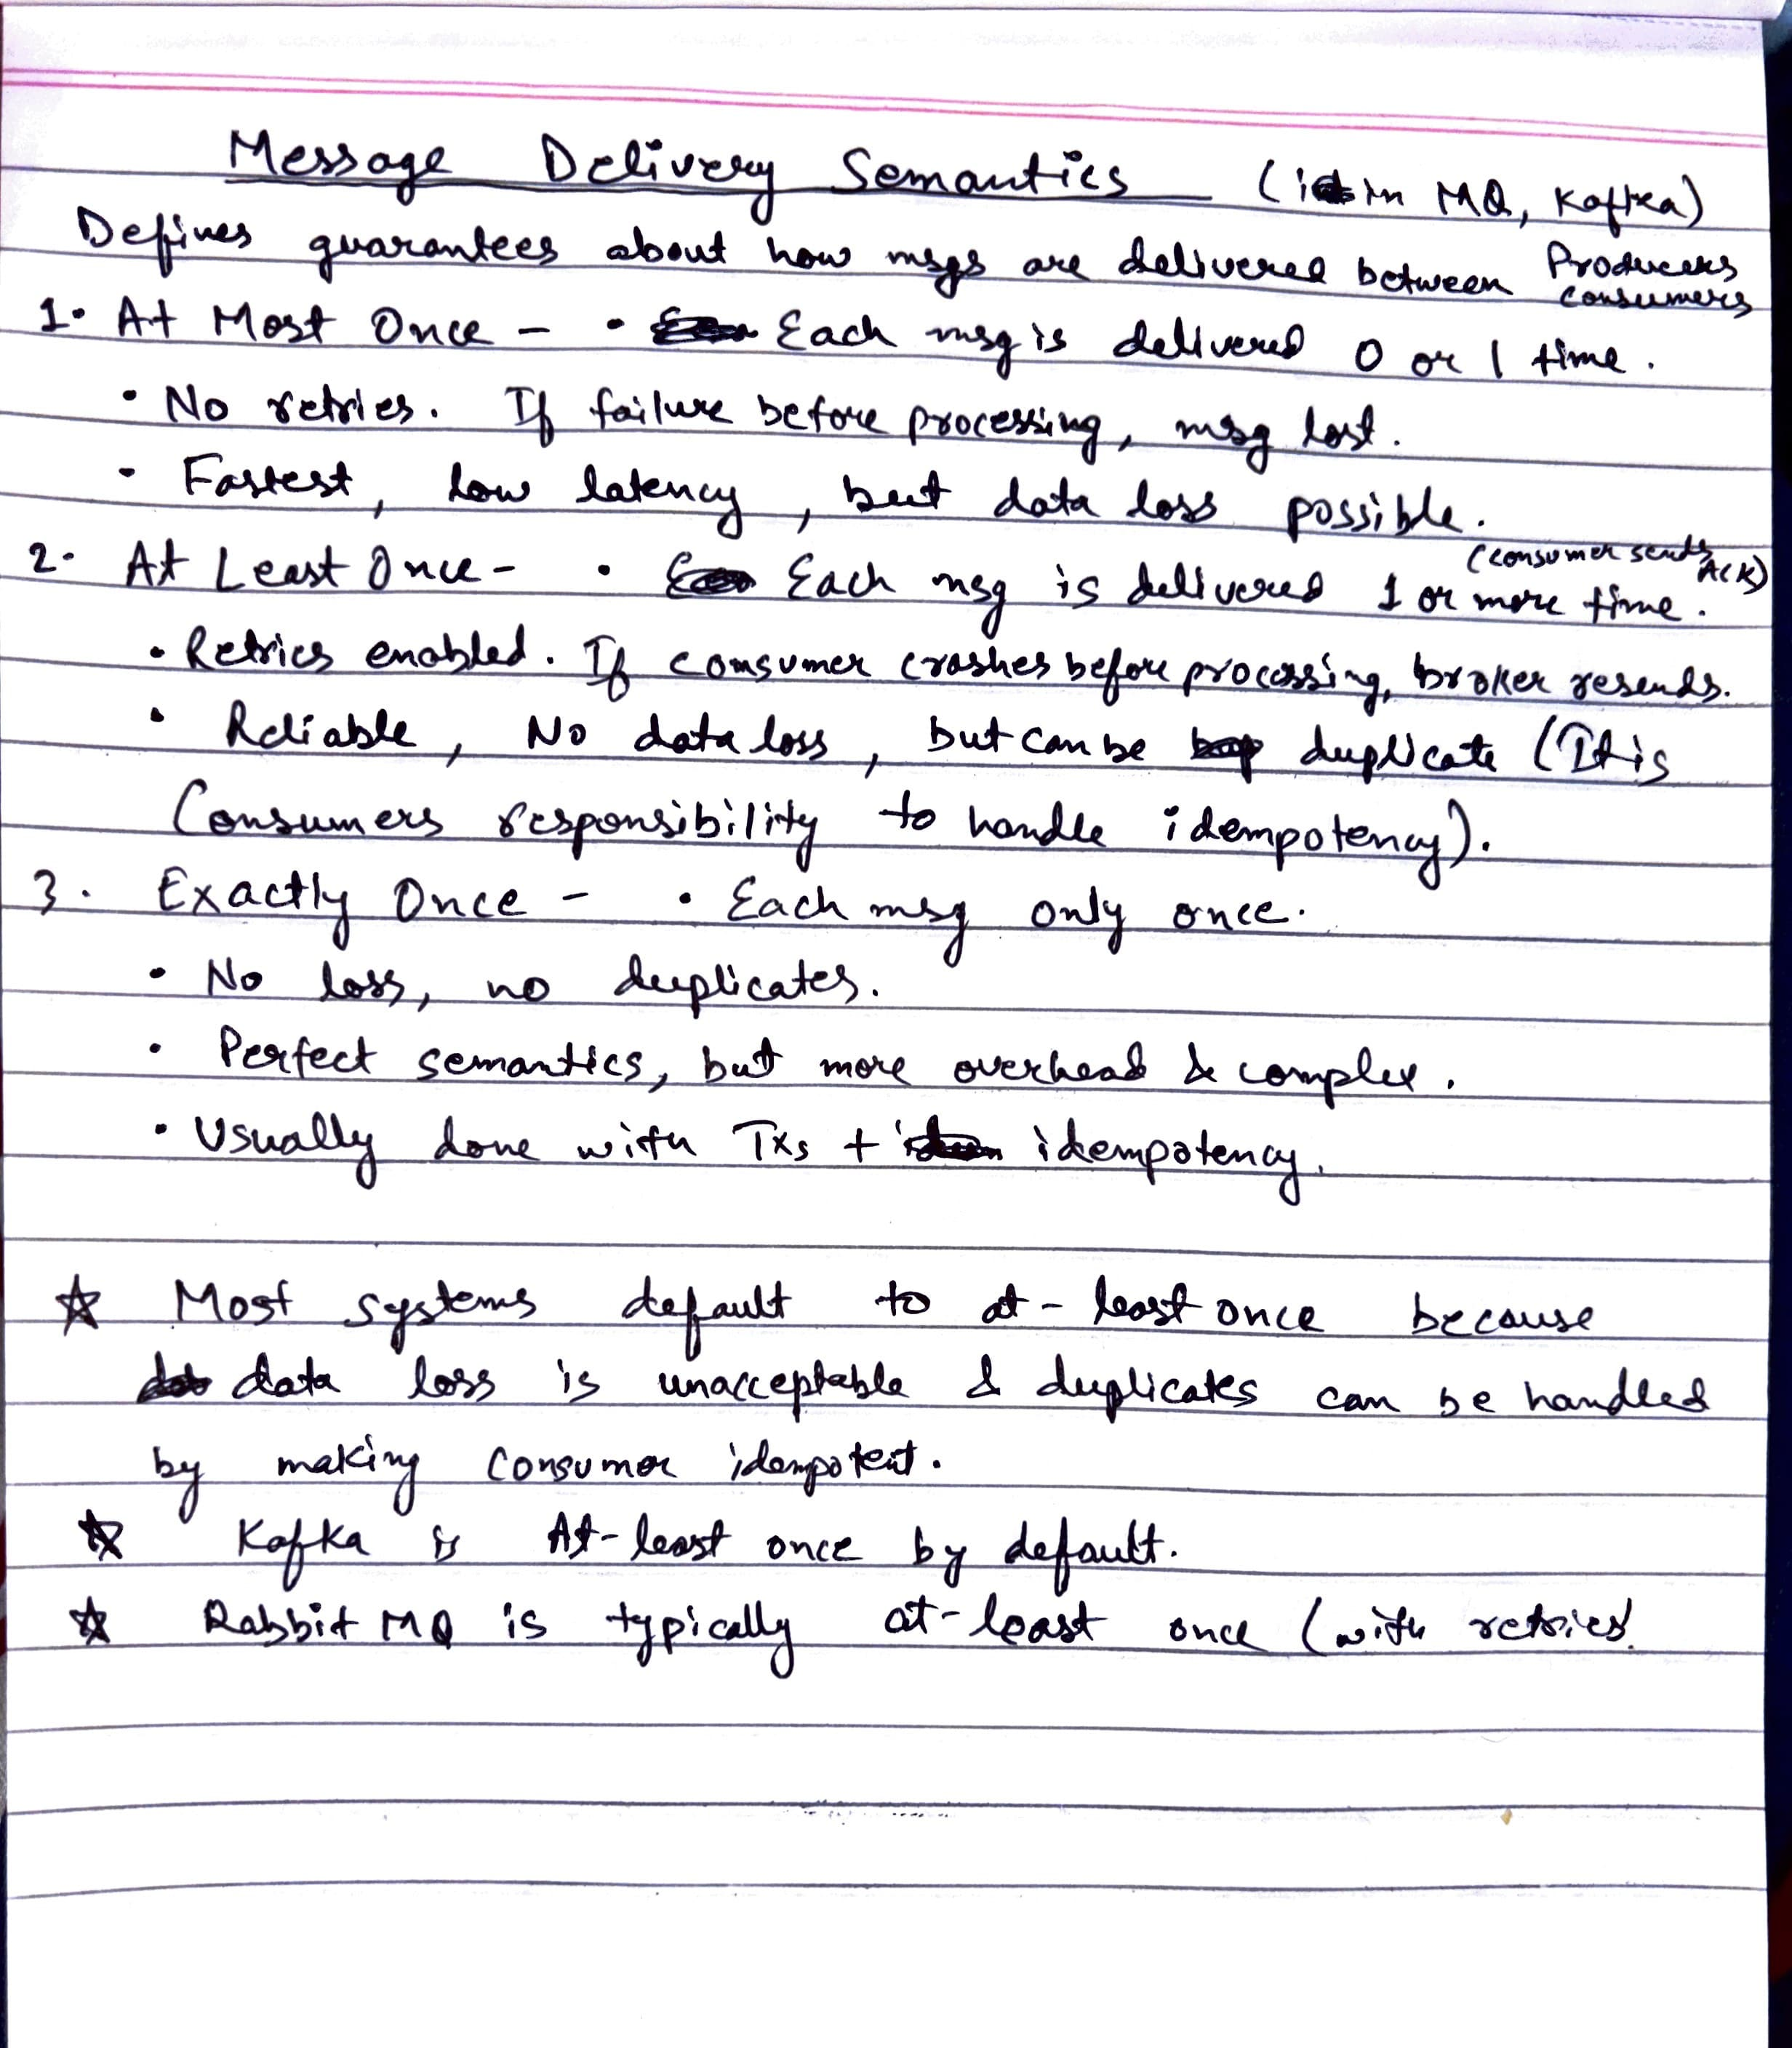 Message Delivery Semantics (in MQ, Kafka)
Defines guarantees about how msgs are delivered between Producers
Consumers
1. At Most Once - • Each msg is delivered 0 or 1 time.
• No retries. If failure before processing, msg lost.
• Fastest, Low latency, but data loss possible.
(consumer sends ACK)
2. At Least Once - • Each msg is delivered 1 or more time.
• Retries enabled. If consumer crashes before processing, broker resends.
• Reliable, No data loss, but can be duplicate (It is
Consumers responsibility to handle idempotency).
3. Exactly Once - • Each msg only once.
• No loss, no duplicates.
• Perfect semantics, but more overhead & complex.
• Usually done with Txs + idempotency.
☆ Most systems default to at-least once because
data loss is unacceptable & duplicates can be handled
by making consumer idempotent.
☆ Kafka is At-least once by default.
☆ Rabbit MQ is typically at-least once (with retries).